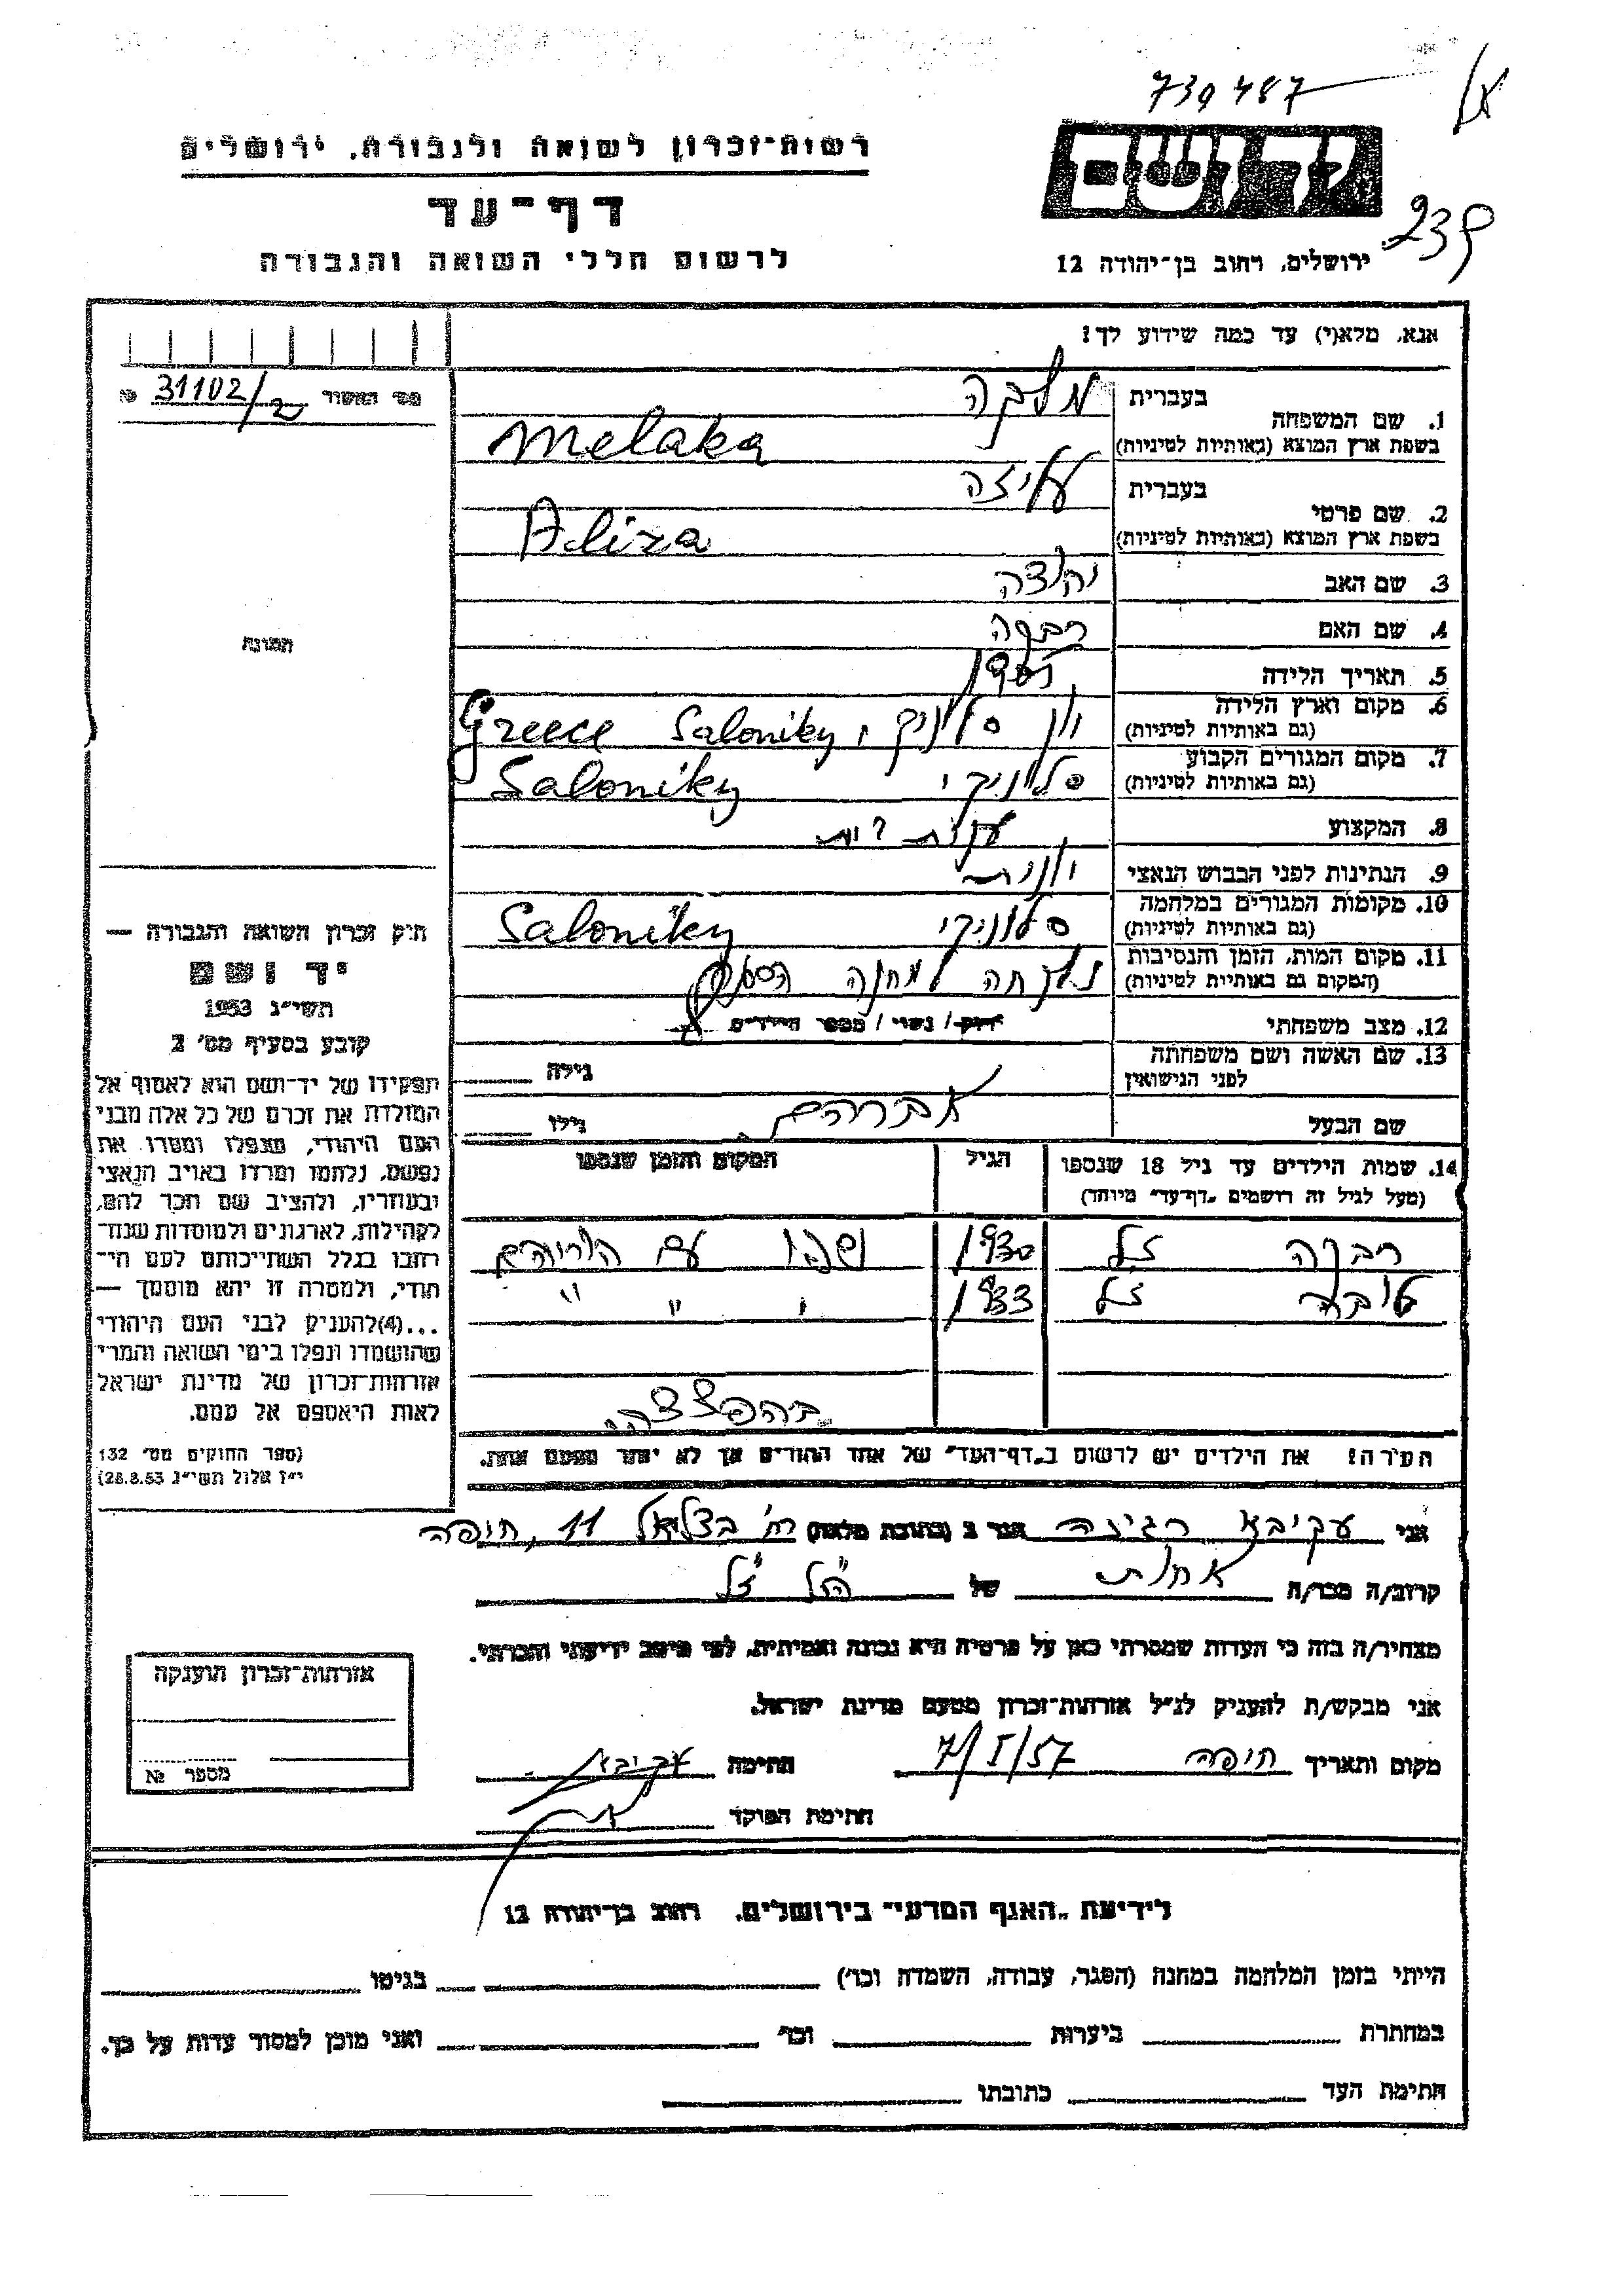 739487
רשות-זכרון לשואה ולגבורה, ירושלים
239
דף-עד
לרשום חללי השואה והגבורה
ירושלים, רחוב בן-יהודה 12
אנא, מלא(י) עד כמה שידוע לך!
מס' האשור 31102/2 №
1. שם המשפחה
בעברית מלכה
בשפת ארץ המוצא (באותיות לטיניות) Melaka
2. שם פרטי
בעברית עליזה
בשפת ארץ המוצא (באותיות לטיניות) Aliza
3. שם האב יהודה
4. שם האם רבקה
5. תאריך הלידה
6. מקום וארץ הלידה יון סלוניקי Greece Saloniky
(גם באותיות לטיניות)
7. מקום המגורים הקבוע סלוניקי Saloniky
(גם באותיות לטיניות)
8. המקצוע עקרת בית
9. הנתינות לפני הכבוש הנאצי יונית
10. מקומות המגורים במלחמה סלוניקי Saloniky
(גם באותיות לטיניות)
11. מקום המות, הזמן והנסיבות נלקחה למחנה הסגר
(המקום גם באותיות לטיניות)
12. מצב משפחתי רווק / נשוי / מספר הילדים
13. שם האשה ושם משפחתה
לפני הנישואין
גילה
שם הבעל אברהם גילו
14. שמות הילדים עד גיל 18 שנספו הגיל המקום והזמן שנספו
(מעל לגיל זה רושמים "דף-עד" מיוחד)
רבקה ז"ל 1930 נשפו עם הוריהם
טובה ז"ל 1933 " " "
בהפצצה.
הערה! את הילדים יש לרשום ב"דף-העד" של אחד ההורים אך לא יותר מפעם אחת.
התמונה
חוק זכרון השואה והגבורה —
יד ושם
תשי"ג 1953
קובע בסעיף מס' 2
תפקידו של יד-ושם הוא לאסוף אל
המולדת את זכרם של כל אלה מבני
העם היהודי, שנפלו ומסרו את
נפשם, נלחמו ומרדו באויב הנאצי
ובעוזריו, ולהציב שם וזכר להם,
לקהילות, לארגונים ולמוסדות שנח-
רבו בגלל השתייכותם לעם הי-
הודי, ולמטרה זו יהא מוסמך —
...(4)להעניק לבני העם היהודי
שהושמדו ונפלו בימי השואה והמרי
אזרחות-זכרון של מדינת ישראל
לאות היאספם אל עמם.
(ספר החוקים מס' 132
י"ז אלול תשי"ג 28.8.53)
אני עקיבא רגינה הגר ב (כתובת מלאה) רח' בצלאל 11, חיפה
קרוב/ה מכר/ה אחות של הנ"ל ז"ל
מצהיר/ה בזה כי העדות שמסרתי כאן על פרטיה היא נכונה ואמיתית, לפי מיטב ידיעתי והכרתי.
אני מבקש/ת להעניק לנ"ל אזרחות-זכרון מטעם מדינת ישראל.
מקום ותאריך חיפה 7/5/57 חתימה עקיבא
חתימת הפוקד
אזרחות-זכרון הוענקה
מספר №
לידיעת "האגף המדעי" בירושלים, רחוב בן-יהודה 12
הייתי בזמן המלחמה במחנה (הסגר, עבודה, השמדה וכו') בגיטו
במחתרת ביערות וכו' ואני מוכן למסור עדות על כך.
חתימת העד כתובתו